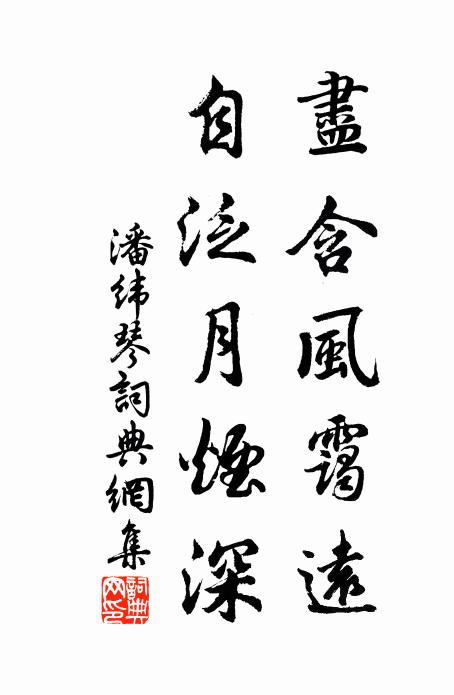 盡含風靄遠
自泛月煙深
潘緯琴詞典網集
詞典網印